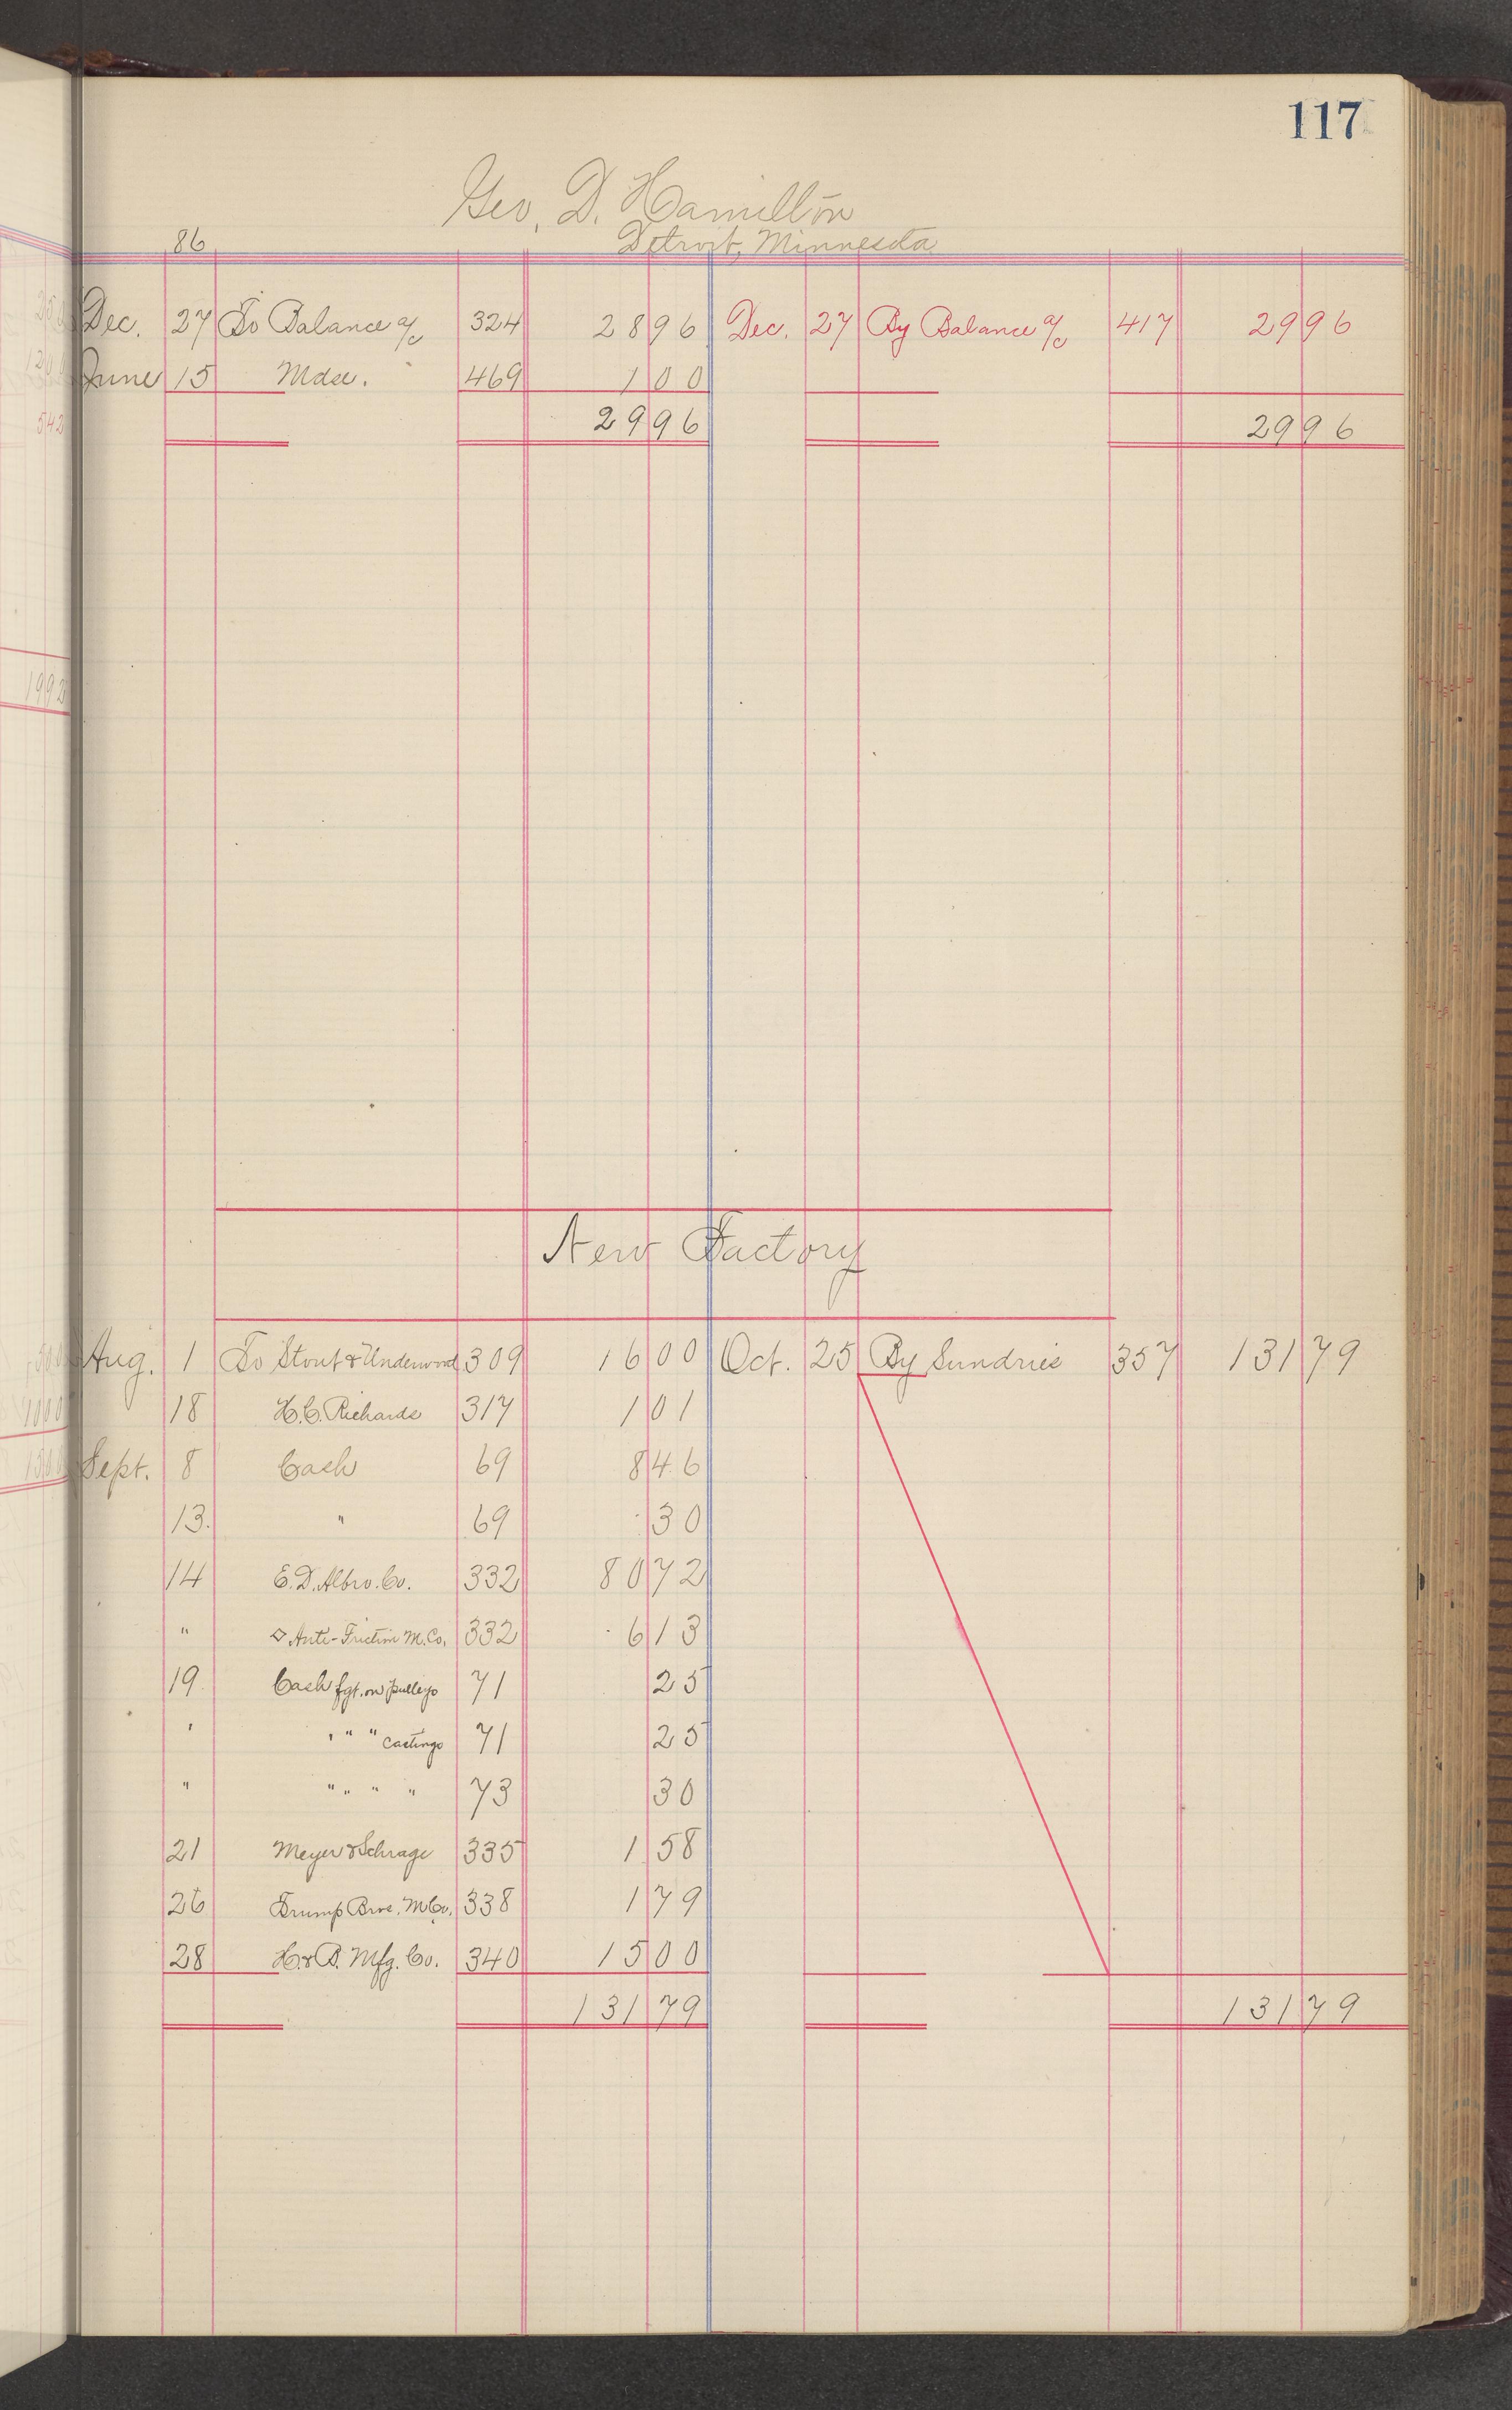 117
Geo. D. Hamilton
86 Detroit, Minnesota
Dec. 27 To Balance a/c 324 28 96 Dec. 27 By Balance a/c 417 29 96
June 15 Mdse. 469 1 00
29 96 29 96
New Factory
Aug. 1 To Stout & Underwood 309 16 00 Oct. 25 By Sundries 357 131 79
18 H.C. Richards 317 1 01
Sept. 8 Cash 69 8 46
13. " 69 30
14 E.D. Albro. Co. 332 80 72
" Anti-Friction M. Co. 332 6 13
19 Cash fgt. on pulleys 71 25
" " " " castings 71 25
" " " " " 73 30
21 Meyer & Schrage 335 1 58
26 Trump Bros. M Co. 338 1 79
28 H. & B. Mfg. Co. 340 15 00
131 79 131 79